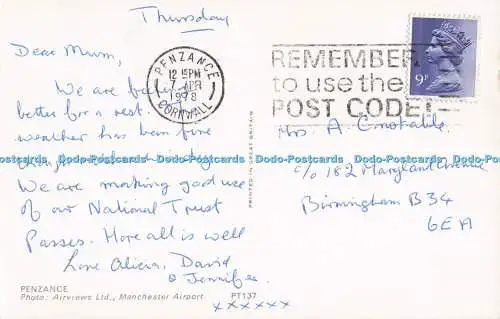 Thursday
Dear Mum,
We are feeling
better for a rest.
weather has been fine
We are making good use
of our National Trust
Passes. Hope all is well
Love Alicia, David
& Jennifer
xxxxxx
PENZANCE
12 15PM
7 APR
1978
CORNWALL
REMEMBER
to use the
POST CODE!
9P
Mrs A. Constable
c/o 182 Maryland Avenue
Birmingham B34
6EA
PRINTED IN GREAT BRITAIN
Postcards Dodo-Postcards Dodo-Postcards Dodo-Postcards Dodo-Postcards Dodo-Postcards
PENZANCE
Photo: Airviews Ltd., Manchester Airport PT137